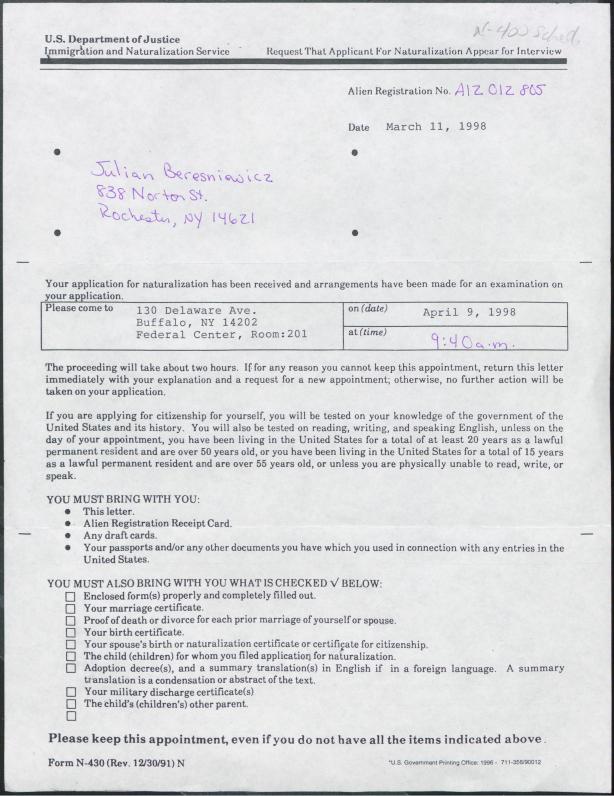 N-400 Sched.
U.S. Department of Justice
Immigration and Naturalization Service Request That Applicant For Naturalization Appear for Interview
Alien Registration No. A12 012 805
Date March 11, 1998
Julian Beresniewicz
838 Norton St.
Rochester, NY 14621
Your application for naturalization has been received and arrangements have been made for an examination on
your application.
Please come to 130 Delaware Ave. on (date) April 9, 1998
Buffalo, NY 14202
Federal Center, Room:201 at (time) 9:40a.m.
The proceeding will take about two hours. If for any reason you cannot keep this appointment, return this letter
immediately with your explanation and a request for a new appointment; otherwise, no further action will be
taken on your application.
If you are applying for citizenship for yourself, you will be tested on your knowledge of the government of the
United States and its history. You will also be tested on reading, writing, and speaking English, unless on the
day of your appointment, you have been living in the United States for a total of at least 20 years as a lawful
permanent resident and are over 50 years old, or you have been living in the United States for a total of 15 years
as a lawful permanent resident and are over 55 years old, or unless you are physically unable to read, write, or
speak.
YOU MUST BRING WITH YOU:
● This letter.
● Alien Registration Receipt Card.
● Any draft cards.
● Your passports and/or any other documents you have which you used in connection with any entries in the
United States.
YOU MUST ALSO BRING WITH YOU WHAT IS CHECKED √ BELOW:
☐ Enclosed form(s) properly and completely filled out.
☐ Your marriage certificate.
☐ Proof of death or divorce for each prior marriage of yourself or spouse.
☐ Your birth certificate.
☐ Your spouse's birth or naturalization certificate or certificate for citizenship.
☐ The child (children) for whom you filed application for naturalization.
☐ Adoption decree(s), and a summary translation(s) in English if in a foreign language. A summary
translation is a condensation or abstract of the text.
☐ Your military discharge certificate(s)
☐ The child's (children's) other parent.
☐
Please keep this appointment, even if you do not have all the items indicated above.
Form N-430 (Rev. 12/30/91) N *U.S. Government Printing Office: 1996 - 711-356/90012